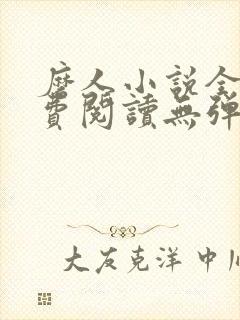 人小説全
費閱讀無彈
大友克洋 中